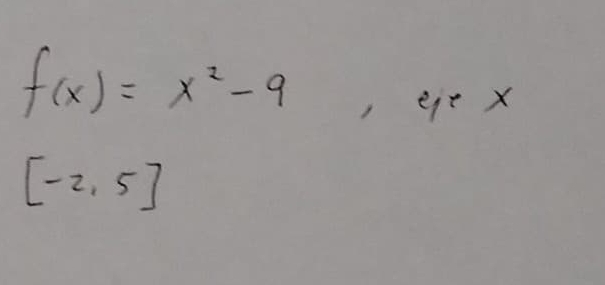 f(x) = x² - 9 , eje x
[-2, 5]